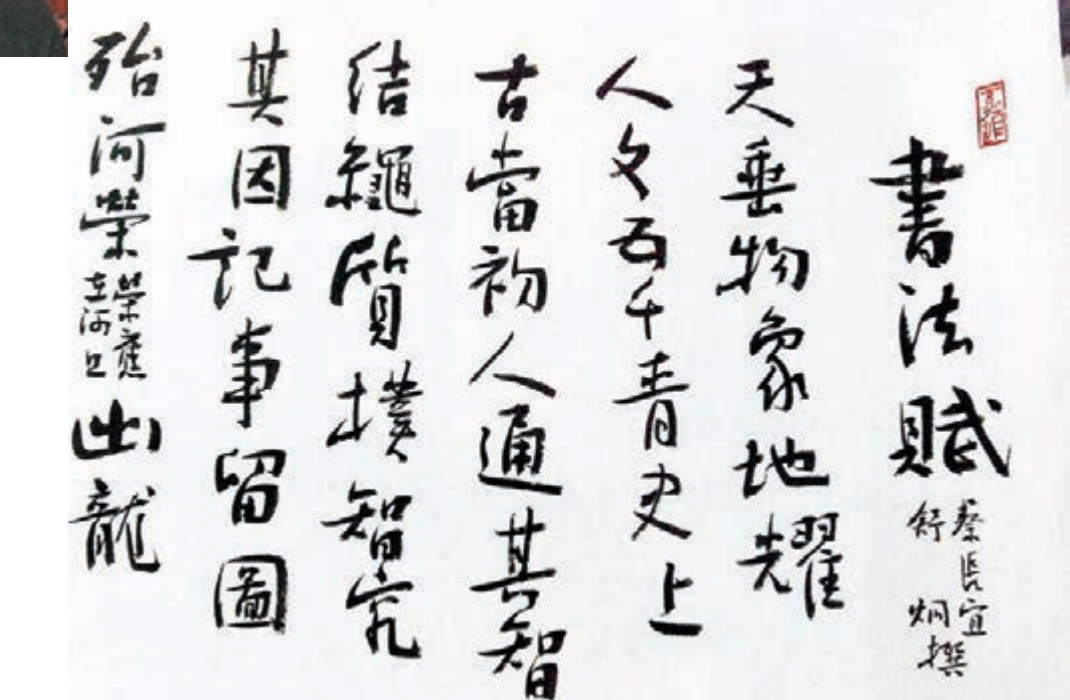 書法賦
蔡長宜
舒炯撰
天垂物象地耀
人文五千青史上
古當初人通其智
結繩質樸智究
其因記事留圖
殆河榮
出龍